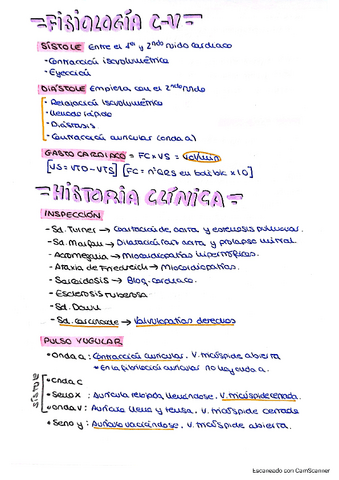 FISIOLOGÍA C-V
SÍSTOLE Entre el 1er y 2ndo ruido cardiaco
- Contracción isovolumétrica
- Eyección
DIÁSTOLE Empieza con el 2ndo ruido
- Relajación isovolumétrica
- Llenado rápido
- Diástasis
- Contracción auricular (onda a)
GASTO CARDIACO = FC x VS = vol/min
[VS = VTD - VTS] [FC = nº QRS en x 10]
HISTORIA CLÍNICA
INSPECCIÓN
- Sd. Turner → Coartación de aorta y estenosis pulmonar.
- Sd. Marfan → Dilatación aorta y prolapso mitral.
- Acromegalia → Miocardiopatías hipertróficas.
- Ataxia de Friedreich → Miocardiopatías.
- Sarcoidosis → Bloq. cardiaco.
- Esclerosis tuberosa
- Sd. Down
- Sd. carcinoide → Valvulopatías derechas
PULSO YUGULAR
• Onda a: Contracción auricular. V. tricúspide abierta
* En la fibrilación auricular no hay onda a.
SÍSTOLE
• Onda c
• Seno x: Aurícula relajada, llenándose. V. tricúspide cerrada.
• Onda v: Aurícula llena y tensa. V. tricúspide cerrada
• Seno y: Aurícula vaciándose. V. tricúspide abierta.
Escaneado con CamScanner